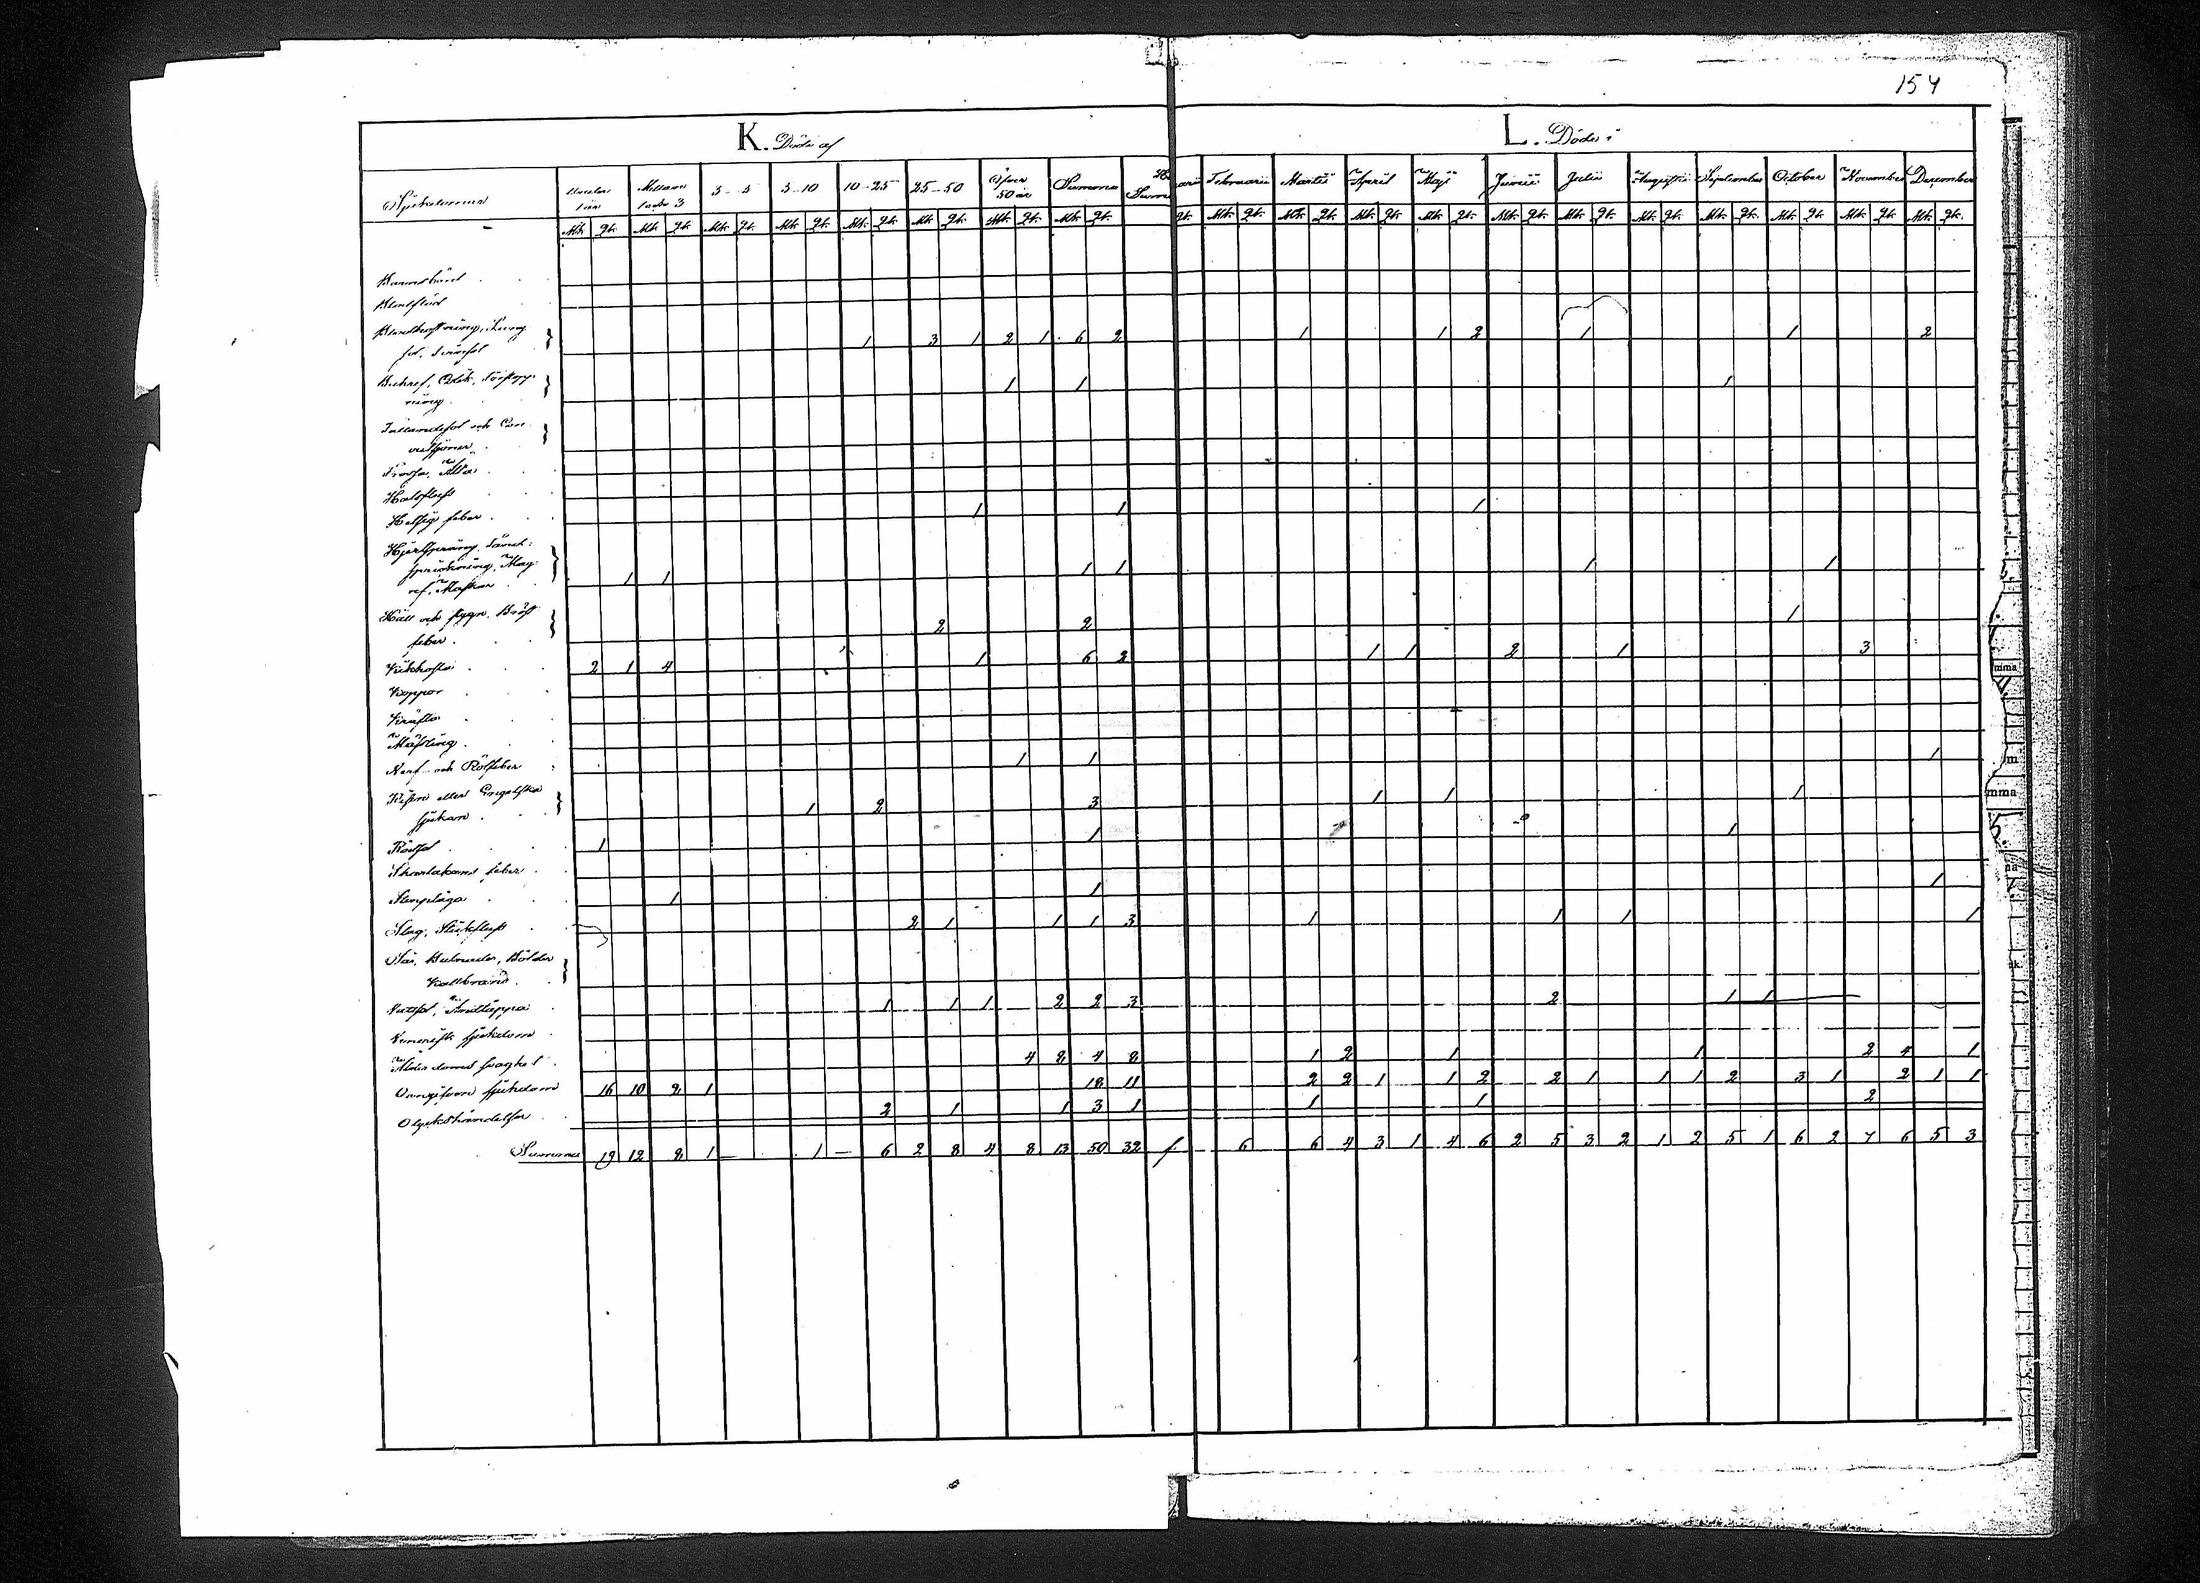 154
K. Döde af
L. Döde i
Sjukdomar Under 1 år Mellan 1 och 3 3-5 5-10 10-25 25-50 Öfver 50 år Summa Februarii Martii April Maji Junii Julii Augusti September October November December
Mk. Qk. Mk. Qk. Mk. Qk. Mk. Qk. Mk. Qk. Mk. Qk. Mk. Qk. Mk. Qk. Qk. Mk. Qk. Mk. Qk. Mk. Qk. Mk. Qk. Mk. Qk. Mk. Qk. Mk. Qk. Mk. Qk. Mk. Qk. Mk. Qk. Mk. Qk.
Barnsbörd
Blodflöd
Blodhostning, Lung 1 3 1 2 1 6 2 1 1 2 1 1 2
sot, Trånsot
Bukref, Colik, Förstopp 1 1 1
ning
Fallandesot och Con
vulsioner
Frossa, Älta
Halsfluss
Hetsig feber 1 1 1
Hjertsprång, Tand
sprickning, Mag 1 1 1 1 1 1
ref, Maskar
Håll och stygn, Bröst 2 2 1
feber
Kikhosta 2 1 4 1 6 2 1 1 2 1 3
Koppor
Kräfta
Mässling
Nerf- och Rötfeber 1 1 1
Risen eller Engelska 1 2 3 1 1 1
sjukan
Rödsot 1 1 1
Skarlakans feber
Slemplåga 1 1 1
Slag, Stickfluss 2 1 1 1 3 1 1 1 1
Sår, Bulnader, Bölder
Kallbrand
Vattsot, Andtäppa 1 1 1 2 2 3 2 1 1
Venerisk sjukdom
Ålderdoms svaghet 4 8 4 8 1 2 1 1 2 4 1
Oangifven sjukdom 16 10 2 1 18 11 2 2 1 1 2 2 1 1 1 2 3 1 2 1 1
Olyckshändelser 2 1 1 3 1 1 1 2
Summa 19 12 8 1 — 1 — 6 2 8 4 8 13 50 32 6 6 4 3 1 4 6 2 5 3 2 1 2 5 1 6 2 7 6 5 3
mma
m
mma
5
na
ak